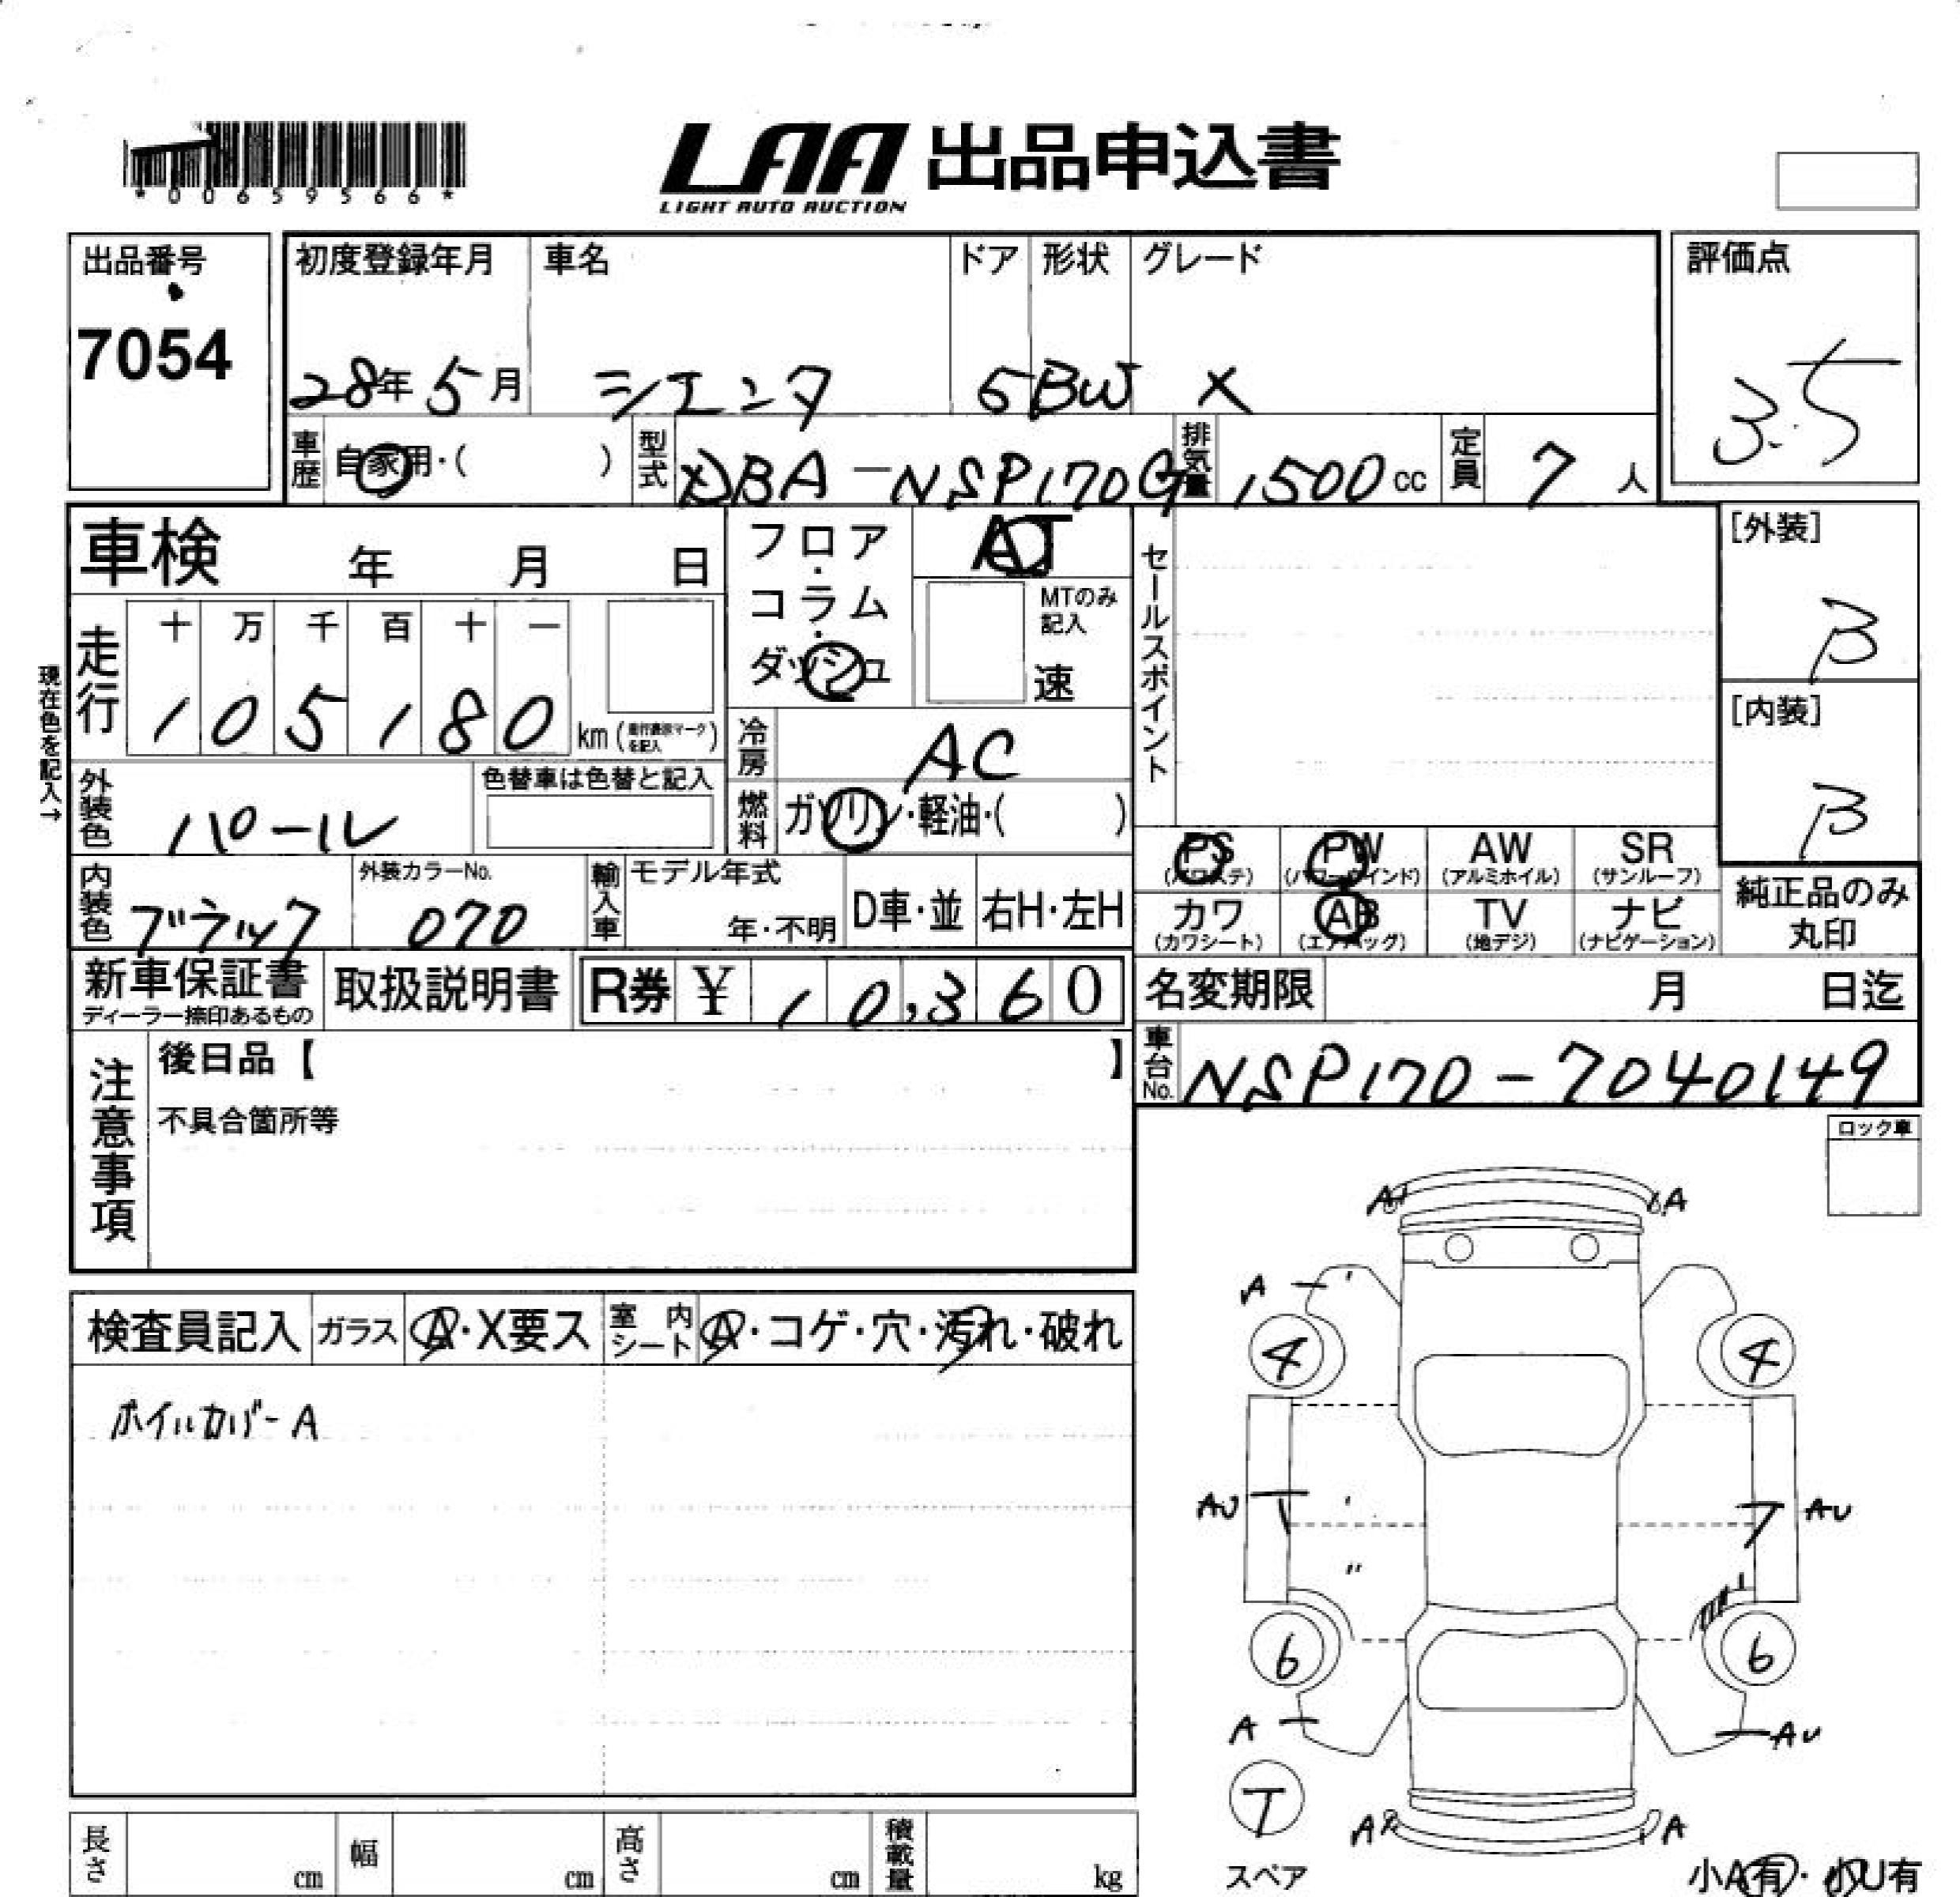 *00659566*
LAA 出品申込書
LIGHT AUTO AUCTION
出品番号
7054
初度登録年月
28年 5月
車名
シエンタ
ドア
5
形状
BW
グレード
X
評価点
3.5
車歴 自家用・( )
型式 DBA-NSP170G
排気量 1500cc
定員 7人
車検 年 月 日
フロア・コラム・ダッシュ
AT
MTのみ記入
速
セールスポイント
[外装]
B
[内装]
B
現在色を記入→
走行 十 万 千 百 十 一
1 0 5 1 8 0 km( を記入)
冷房 AC
外装色 パール
色替車は色替と記入
燃料 ガソリン・軽油・( )
PS PW AW SR
(パワステ) (パワーウインド) (アルミホイル) (サンルーフ)
カワ AB TV ナビ
(カワシート) (エアバッグ) (地デジ) (ナビゲーション)
純正品のみ丸印
内装色 ブラック
外装カラーNo.
070
輸入車 モデル年式
年・不明
D車・並 右H・左H
新車保証書
ディーラー捺印あるもの
取扱説明書
R券 ¥ 10,360
名変期限 月 日迄
車台No. NSP170-7040149
注意事項
後日品【 】
不具合箇所等
ロック車
検査員記入 ガラス A・X要ス 室内シート A・コゲ・穴・汚れ・破れ
ホイルカバーA
A A
A
4 4
AU AU
6 6
A AU
T
スペア
A A
小A有・小U有
長さ cm 幅 cm 高さ cm 積載量 kg